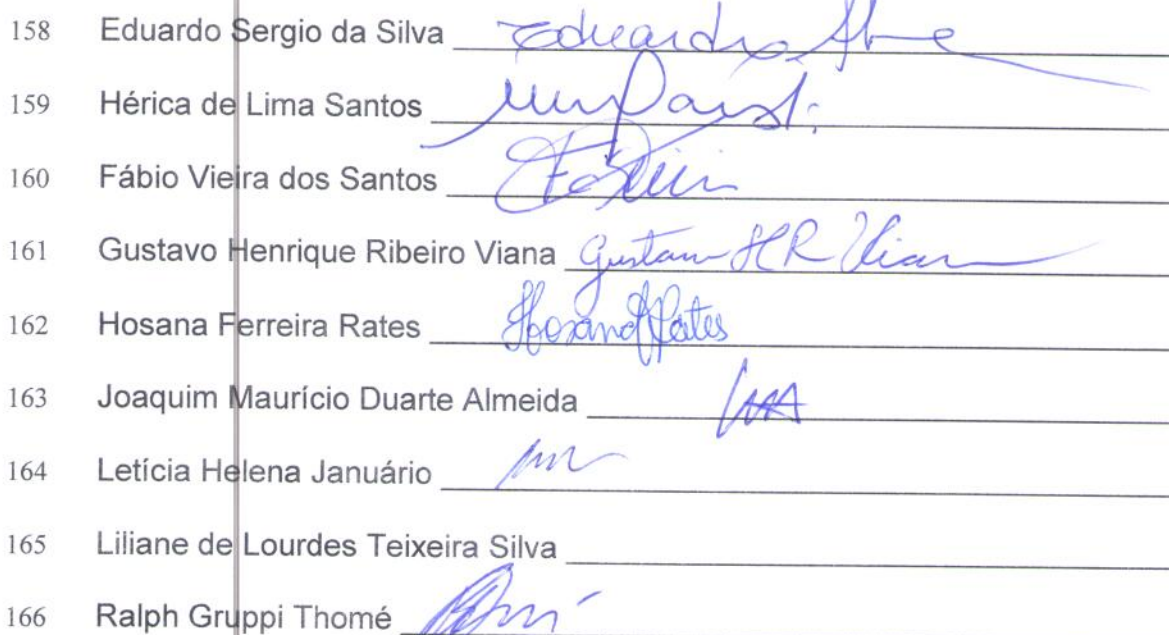 158 Eduardo Sergio da Silva Eduardo
159 Hérica de Lima Santos
160 Fábio Vieira dos Santos
161 Gustavo Henrique Ribeiro Viana Gustavo HR Viana
162 Hosana Ferreira Rates HosanaFRates
163 Joaquim Maurício Duarte Almeida
164 Letícia Helena Januário
165 Liliane de Lourdes Teixeira Silva
166 Ralph Gruppi Thomé